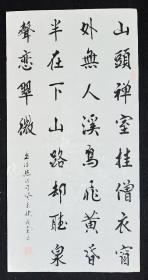 山頭禅室挂僧衣窗
外無人溪鳥飛黄昏
半在下山路却聴泉
聲戀翠微